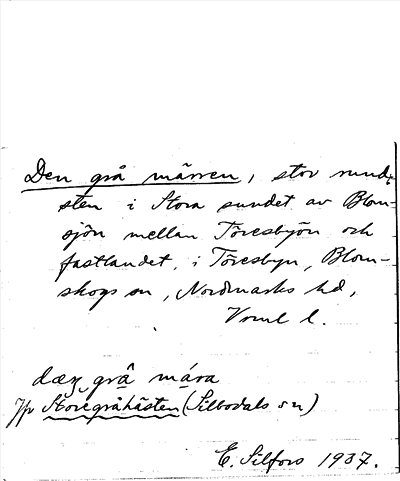 Den grå märren, stor rund-
sten i Stora sundet av Blom-
sjön mellan Töresbyön och
fastlandet, i Töresbyn, Blom-
skogs sn, Nordmarks hd,
Vrml l.
dæn grå mára
Jfr Storegråhästen (Silbodals sn)
E. Silfors 1937.